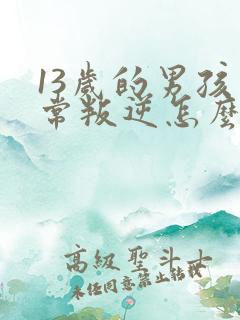 13歲的男孩
常叛逆怎麼
高級聖斗士
未任同意禁止轉載